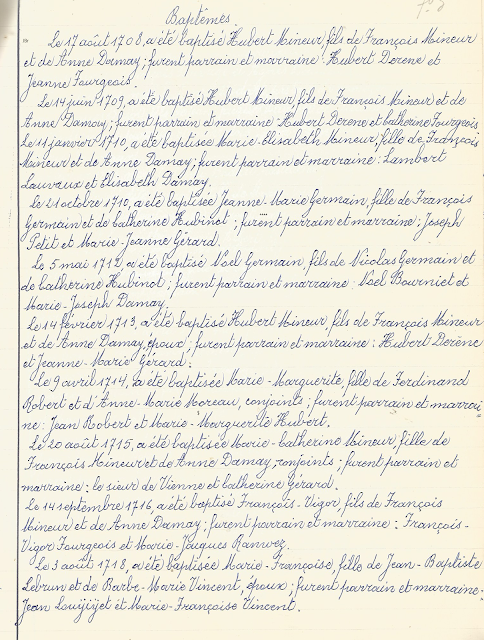 Baptêmes.
Le 17 août 1708, a été baptisé Hubert Mineur, fils de François Mineur
et de Anne Damay; furent parrain et marraine: Hubert Derene et
Jeanne Fourgeois.
Le 14 juin 1709, a été baptisé Hubert Mineur, fils de François Mineur et de
Anne Damoy; furent parrain et marraine - Hubert Derene et Catherine Fourgeois
Le 11 janvier 1710, a été baptisée Marie-Elisabeth Mineur, fille de François
Mineur et de Anne Damay; furent parrain et marraine: Lambert
Lauvaux et Elisabeth Damay.
Le 21 octobre 1710, a été baptisée Jeanne-Marie Germain, fille de François
Germain et de Catherine Hubinot; furent parrain et marraine; Joseph
Petit et Marie-Jeanne Gérard.
Le 5 mai 1712, a été baptisé Noël Germain, fils de Nicolas Germain et
de Catherine Hubinot; furent parrain et marraine: Noël Bourniet et
Marie-Joseph Damay.
Le 14 février 1713, a été baptisé Hubert Mineur, fils de François Mineur
et de Anne Damay, époux; furent parrain et marraine: Hubert Derène
et Jeanne-Marie Gérard.
Le 9 avril 1714, a été baptisée Marie-Marguerite, fille de Ferdinand
Robert et d'Anne-Marie Moreau, conjoints; furent parrain et marrai=
ne: Jean Robert et Marie-Marguerite Hubert.
Le 20 août 1715, a été baptisée Marie-Catherine Mineur, fille de
François Mineur et de Anne Damay, conjoints; furent parrain et
marraine: le sieur de Vienne et Catherine Gérard.
Le 14 septembre 1716, a été baptisé François-Vigor, fils de François
Mineur et de Anne Damay; furent parrain et marraine: François-
Vigor Fourgeois et Marie-Jacques Ranwez.
Le 3 août 1718, a été baptisée Marie-Françoise, fille de Jean-Baptiste
Lebrun et de Barbe-Marie Vincent, époux; furent parrain et marraine-
Jean et Marie-Françoise Vincent.